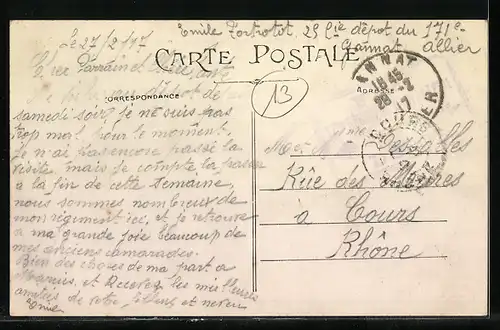 Emile 29 Cie dépôt du 171e
Gannat Allier
Le 27/2/17
CARTE POSTALE
CORRESPONDANCE
ADRESSE
13
18 45
28 -2
17
Cher Parrain et
depuis
samedi soir, je ne suis pas
trop mal pour le moment,
Je n'ai pas encore passé la
visite, mais je compte la passer
à la fin de cette semaine,
nous sommes nombreux de
mon régiment ici, et je retrouve
a ma grande joie beaucoup de
mes anciens camarades.
Bien des choses de ma part a
et Recevez les meilleures
amitiés de votre filleul et neveu
Emile
Rue des
a Cours
Rhône